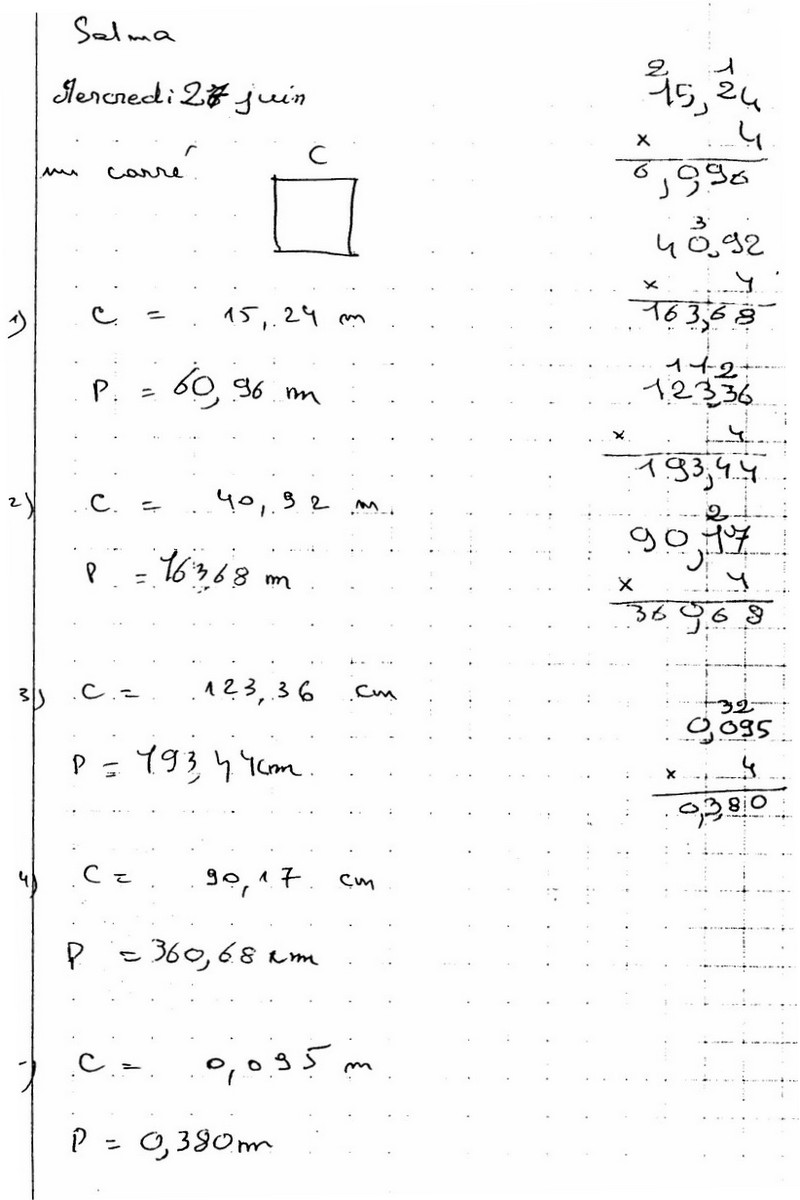 Selma
Mercredi 27 juin
un carré
C
1) C = 15,24 m
P = 60,96 m
2) C = 40,92 m
P = 163,68 m
3) C = 123,36 cm
P = 193,44 cm
4) C = 90,17 cm
P = 360,68 cm
C = 0,095 m
P = 0,380 m
2 1
15,24
x 4
6,0,96
3
40,92
x 4
163,68
1 1 2
123,36
x 4
193,44
2
90,17
x 4
360,68
32
0,095
x 4
0,380